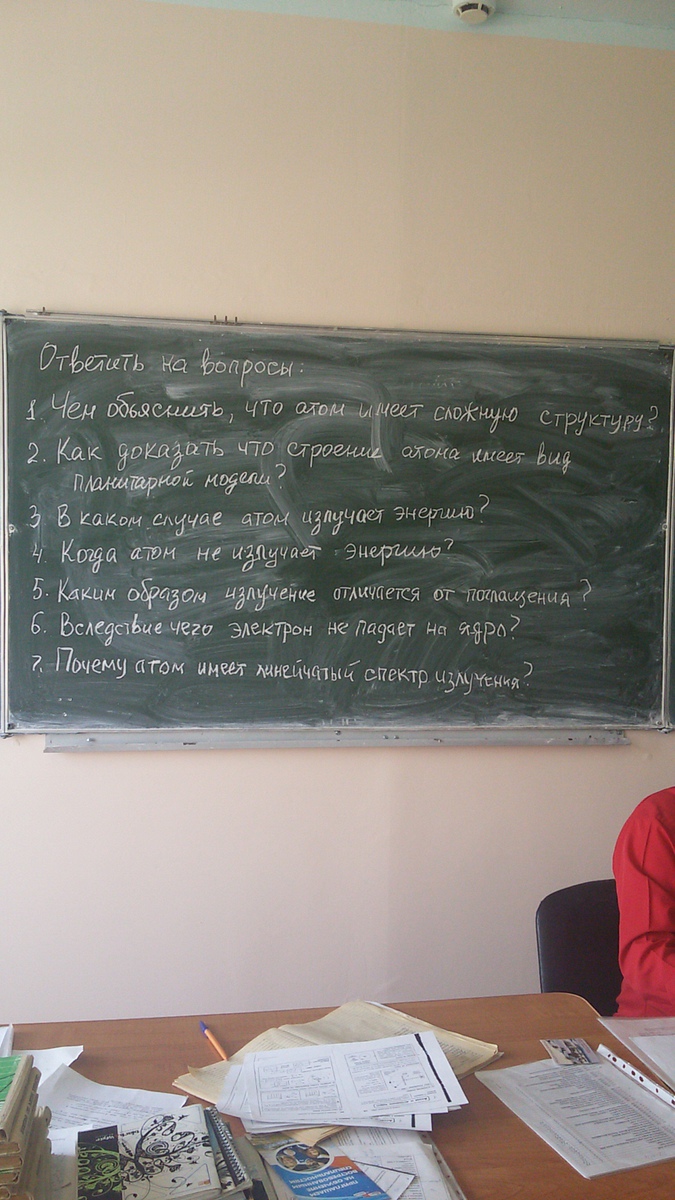 Ответить на вопросы:
1. Чем объяснить, что атом имеет сложную структуру?
2. Как доказать что строение атома имеет вид
планитарной модели?
3 В каком случае атом излучает энергию?
4. Когда атом не излучает энергию?
5. Каким образом излучение отличается от поглащения?
6. Вследствие чего электрон не падает на ядро?
7. Почему атом имеет линейчатый спектр излучения?